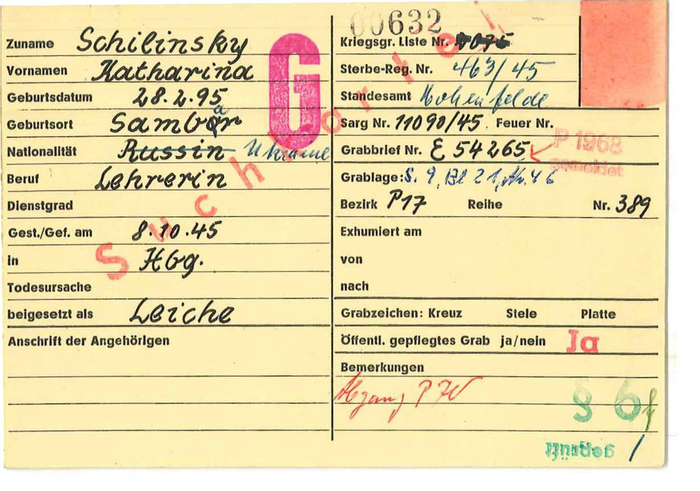 00632
Zuname Schilinsky
Vornamen Katharina
Geburtsdatum 28.2.95
Geburtsort Sambor
Nationalität Russin Ukraine
Beruf Lehrerin
Dienstgrad
Gest./Gef. am 8.10.45
in Hbg.
Todesursache
beigesetzt als Leiche
Anschrift der Angehörigen
G
Suchkartei
Kriegsgr. Liste Nr.
Sterbe-Reg. Nr. 463/45
Standesamt Hohenfelde
Sarg Nr. 11090/45 Feuer Nr.
Grabbrief Nr. E 54265
P 1968
gemeldet
Grablage: S. 9, Bl 21, Nr. 46
Bezirk P17 Reihe Nr. 389
Exhumiert am
von
nach
Grabzeichen: Kreuz Stele Platte
Öffentl. gepflegtes Grab ja/nein Ja
Bemerkungen
Abgang
§ 6
geprüft